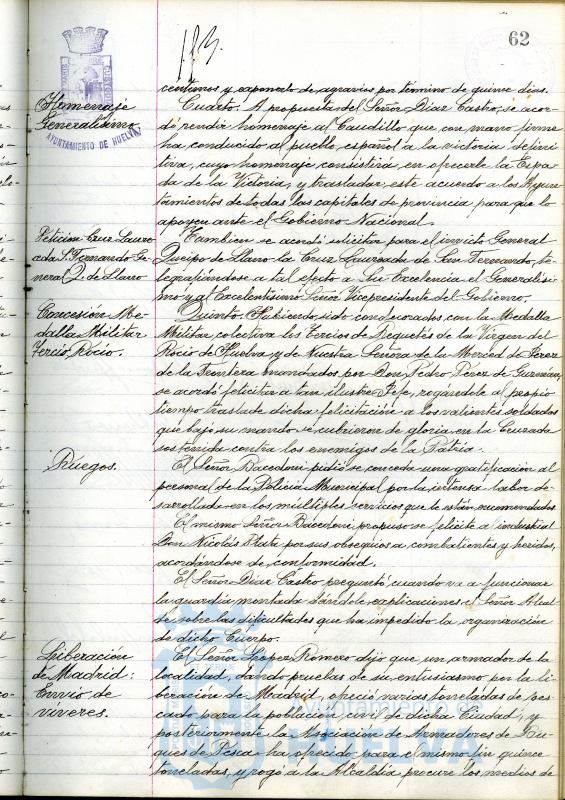 183.
62
AYUNTAMIENTO DE HUELVA
céntimos y exponerlo de agravios por término de quince días.
Homenaje
Generalísimo
Cuarto. A propuesta del Señor Díaz Castro, se acor-
dó rendir homenaje al Caudillo que con mano firme
ha conducido al pueblo español a la victoria defini-
tiva, cuyo homenaje consistirá en ofrecerle la Espa-
da de la Victoria, y trasladar este acuerdo a los Ayun-
tamientos de todas las capitales de provincia para que lo
apoyen ante el Gobierno Nacional.
Petición Cruz Laure-
ada S. Fernando Ge-
neral Q. de Llano
También se acordó solicitar para el invicto General
Queipo de Llano la Cruz Laureada de San Fernando, te-
legrafiándose a tal efecto a Su Excelencia el Generalísi-
mo y al Excelentísimo Señor Vicepresidente del Gobierno.
Concesión Me-
dalla Militar
Tercio Rocío.
Quinto. Habiendo sido condecorados con la Medalla
Militar, colectiva los Tercios de Requetés de la Virgen del
Rocío de Huelva y de Nuestra Señora de la Merced de Jerez
de la Frontera mandados por Don Pedro Pérez de Guzmán,
se acordó felicitar a tan ilustre Jefe, rogándole al propio
tiempo traslade dicha felicitación a los valientes soldados
que bajo su mando se cubrieron de gloria en la Cruzada
sostenida contra los enemigos de la Patria.
Ruegos.
El Señor Bacedoni pidió se conceda una gratificación al
personal de la Policía Municipal por la intensa labor de-
sarrollada en los múltiples servicios que le están encomendados.
El mismo Señor Bacedoni propuso se felicite al industrial
Don Nicolás por sus obsequios a combatientes y heridos,
acordándose de conformidad.
El Señor Díaz Castro preguntó cuando va a funcionar
la guardia montada dándole explicaciones el Señor Alcal-
de sobre las dificultades que ha impedido la organización
de dicho Cuerpo.
Liberación
de Madrid:
Envío de
víveres.
El Señor López Romero dijo que un armador de la
localidad, dando pruebas de su entusiasmo por la li-
beración de Madrid, ofreció varias toneladas de pes-
cado para la población civil de dicha Ciudad, y
posteriormente la Asociación de Armadores de Bu-
ques de Pesca ha ofrecido para el mismo fin quince
toneladas, y rogó a la Alcaldía procure los medios de
Ayuntamiento de
HUELVA